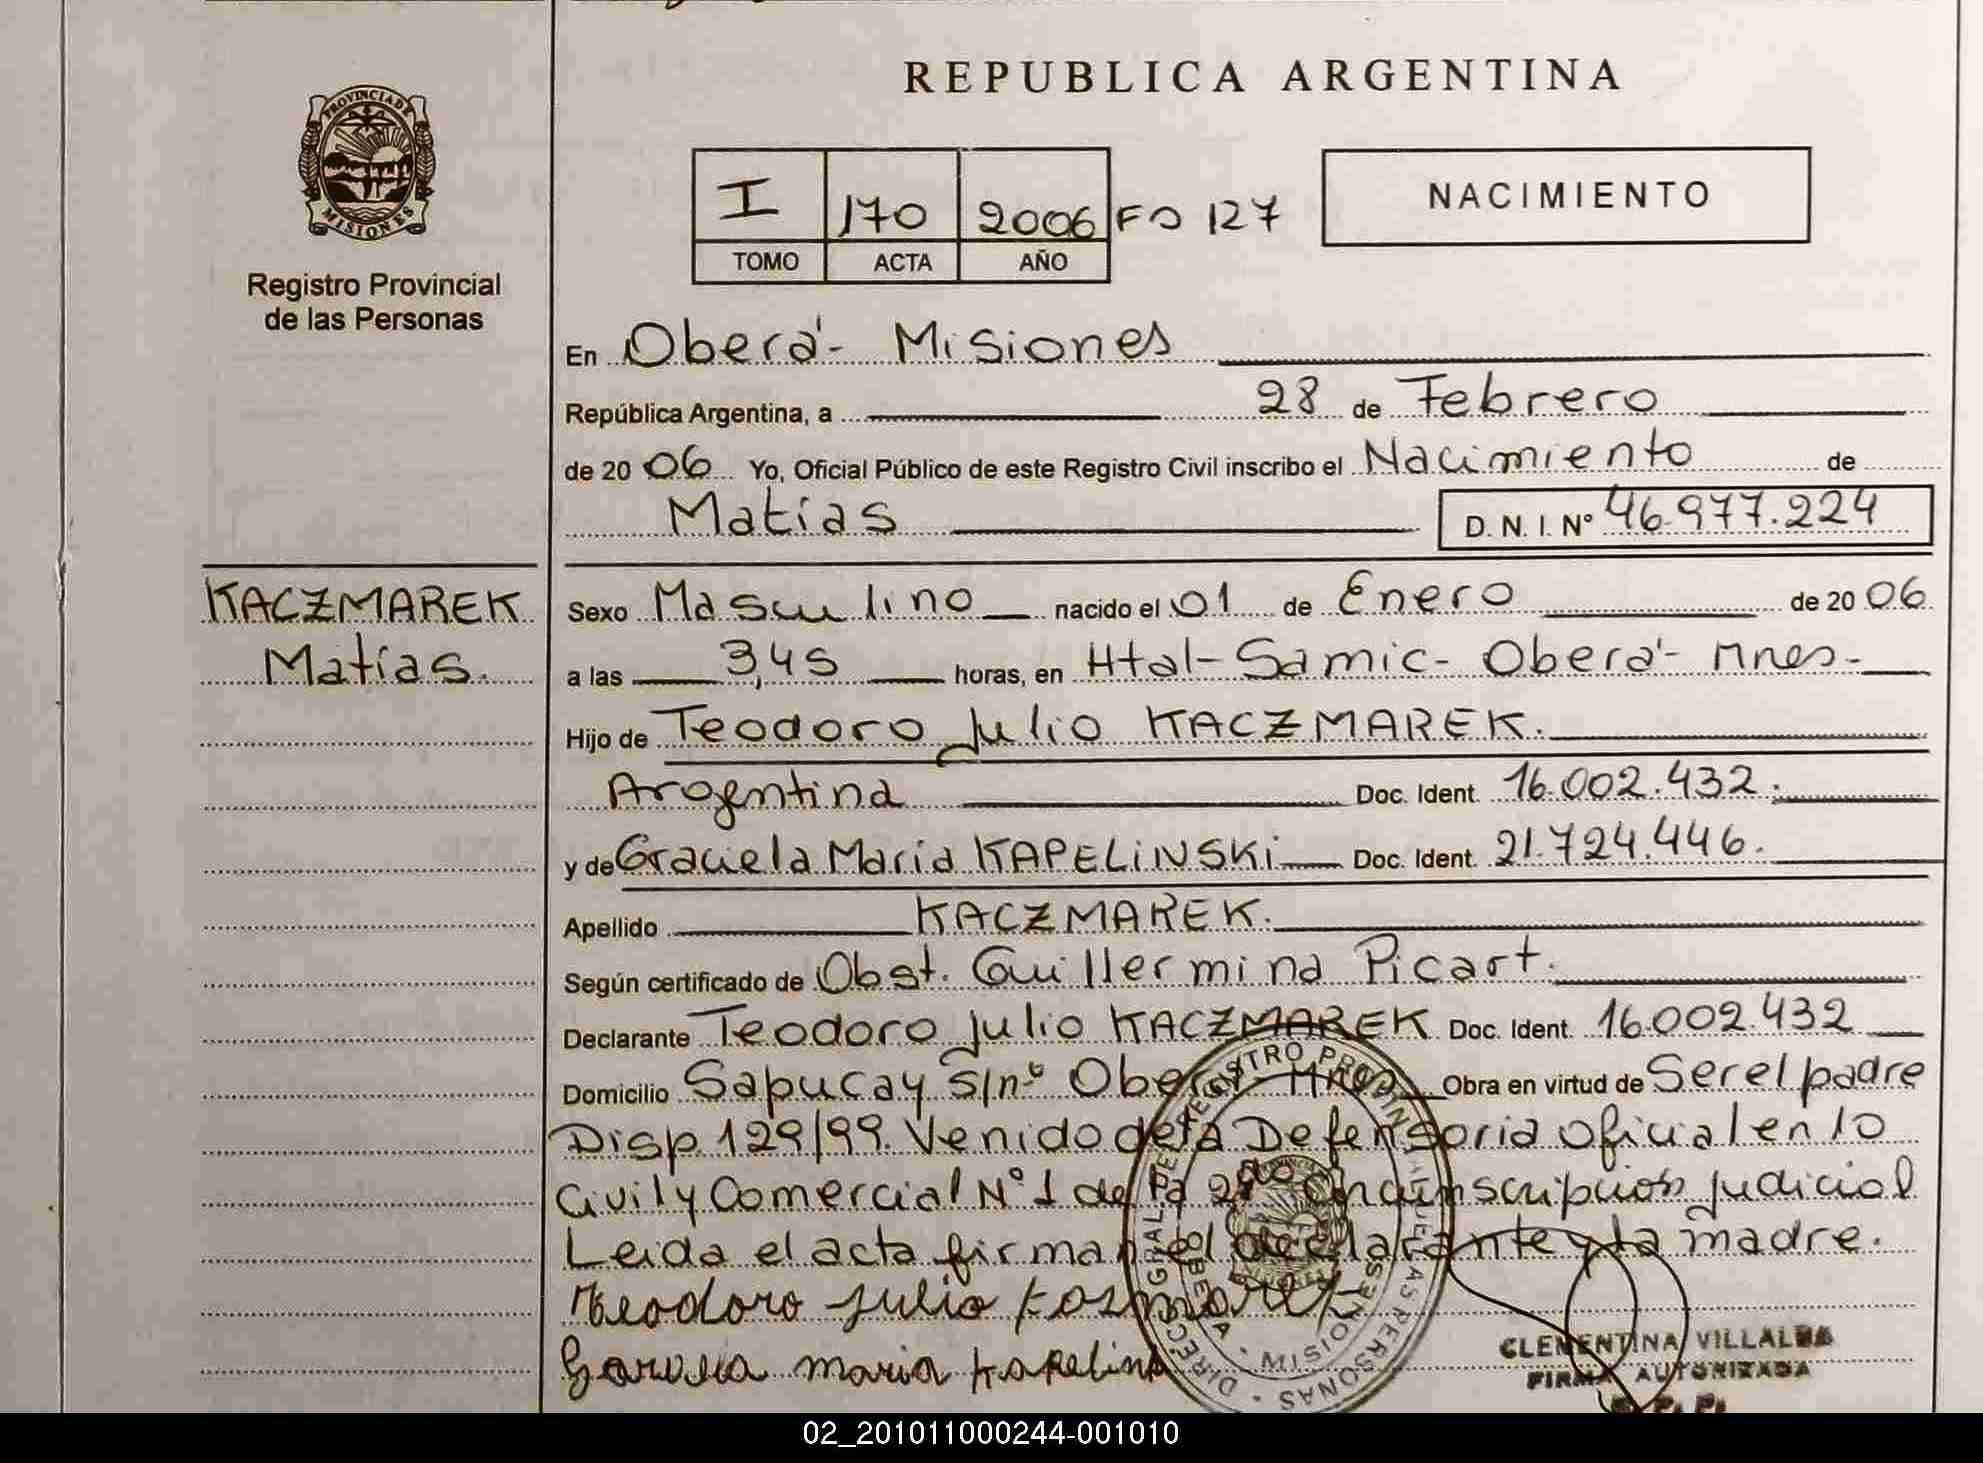 REPUBLICA ARGENTINA
PROVINCIA DE
MISIONES
Registro Provincial
de las Personas
I 170 2006 Fo 127
TOMO ACTA AÑO
NACIMIENTO
En Oberá - Misiones
República Argentina, a 28 de Febrero
de 20 06 Yo, Oficial Público de este Registro Civil inscribo el Nacimiento de
Matías D. N. I. Nº 46.977.224
KACZMAREK
Matías.
Sexo Masculino nacido el 01 de Enero de 20 06
a las 3,45 horas, en Htal - Samic - Oberá - Mnes -
Hijo de Teodoro Julio KACZMAREK.
Argentina Doc. Ident. 16.002.432.
y de Graciela María KAPELINSKI Doc. Ident. 21.724.446.
Apellido KACZMAREK.
Según certificado de Obst. Guillermina Picart.
Declarante Teodoro Julio KACZMAREK Doc. Ident. 16.002.432
Domicilio Sapucay s/nº Oberá Mnes Obra en virtud de Ser el padre
Disp. 129/99. Venido de la Defensoria oficial en lo
Civil y Comercial Nº 1 de la 2da Circunscripción judicial
Leida el acta firman el declarante y la madre.
Teodoro Julio
maria
DIRECC GRAL DE REGISTRO PROVINCIAL DE LAS PERSONAS
OBERA
MISIONES
CLEMENTINA VILLALBA
FIRMA AUTORIZADA
R. P. P.
02_201011000244-001010